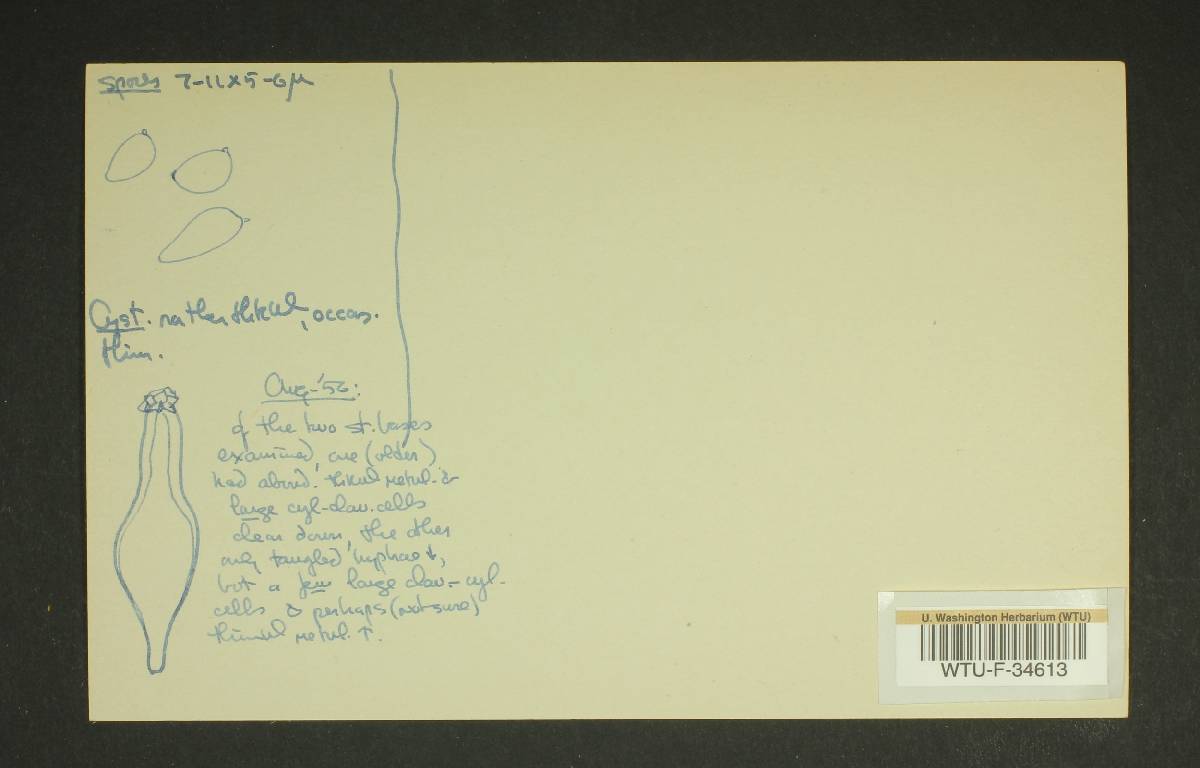 Spores 7-11 x 5-6µ
Cyst. rather thikwl, occas.
thin.
Aug-'56:
of the two st. bases
examined, one (older)
had abund. thikwl metul. &
large cyl-clav. cells
clear down, the other
only tangled hyphae ↓,
but a few large clav-cyl.
cells & perhaps (not sure)
thinwl metul. ↑.
U. Washington Herbarium (WTU)
WTU-F-34613